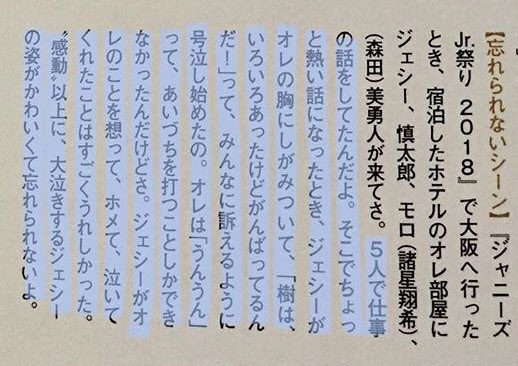 【忘れられないシーン】『ジャニーズ
Jr.祭り 2018』で大阪へ行った
とき、宿泊したホテルのオレ部屋に
ジェシー、慎太郎、モロ(諸星翔希)、
(森田)美勇人が来てさ。5人で仕事
の話をしてたんだよ。そこでちょっ
と熱い話になったとき、ジェシーが
オレの胸にしがみついて、「樹は、
いろいろあったけどがんばってるん
だ!」って、みんなに訴えるように
号泣し始めたの。オレは「うんうん」
って、あいづちを打つことしかでき
なかったんだけどさ。ジェシーがオ
レのことを想って、ホメて、泣いて
くれたことはすごくうれしかった。
“感動”以上に、大泣きするジェシー
の姿がかわいくて忘れられないよ。